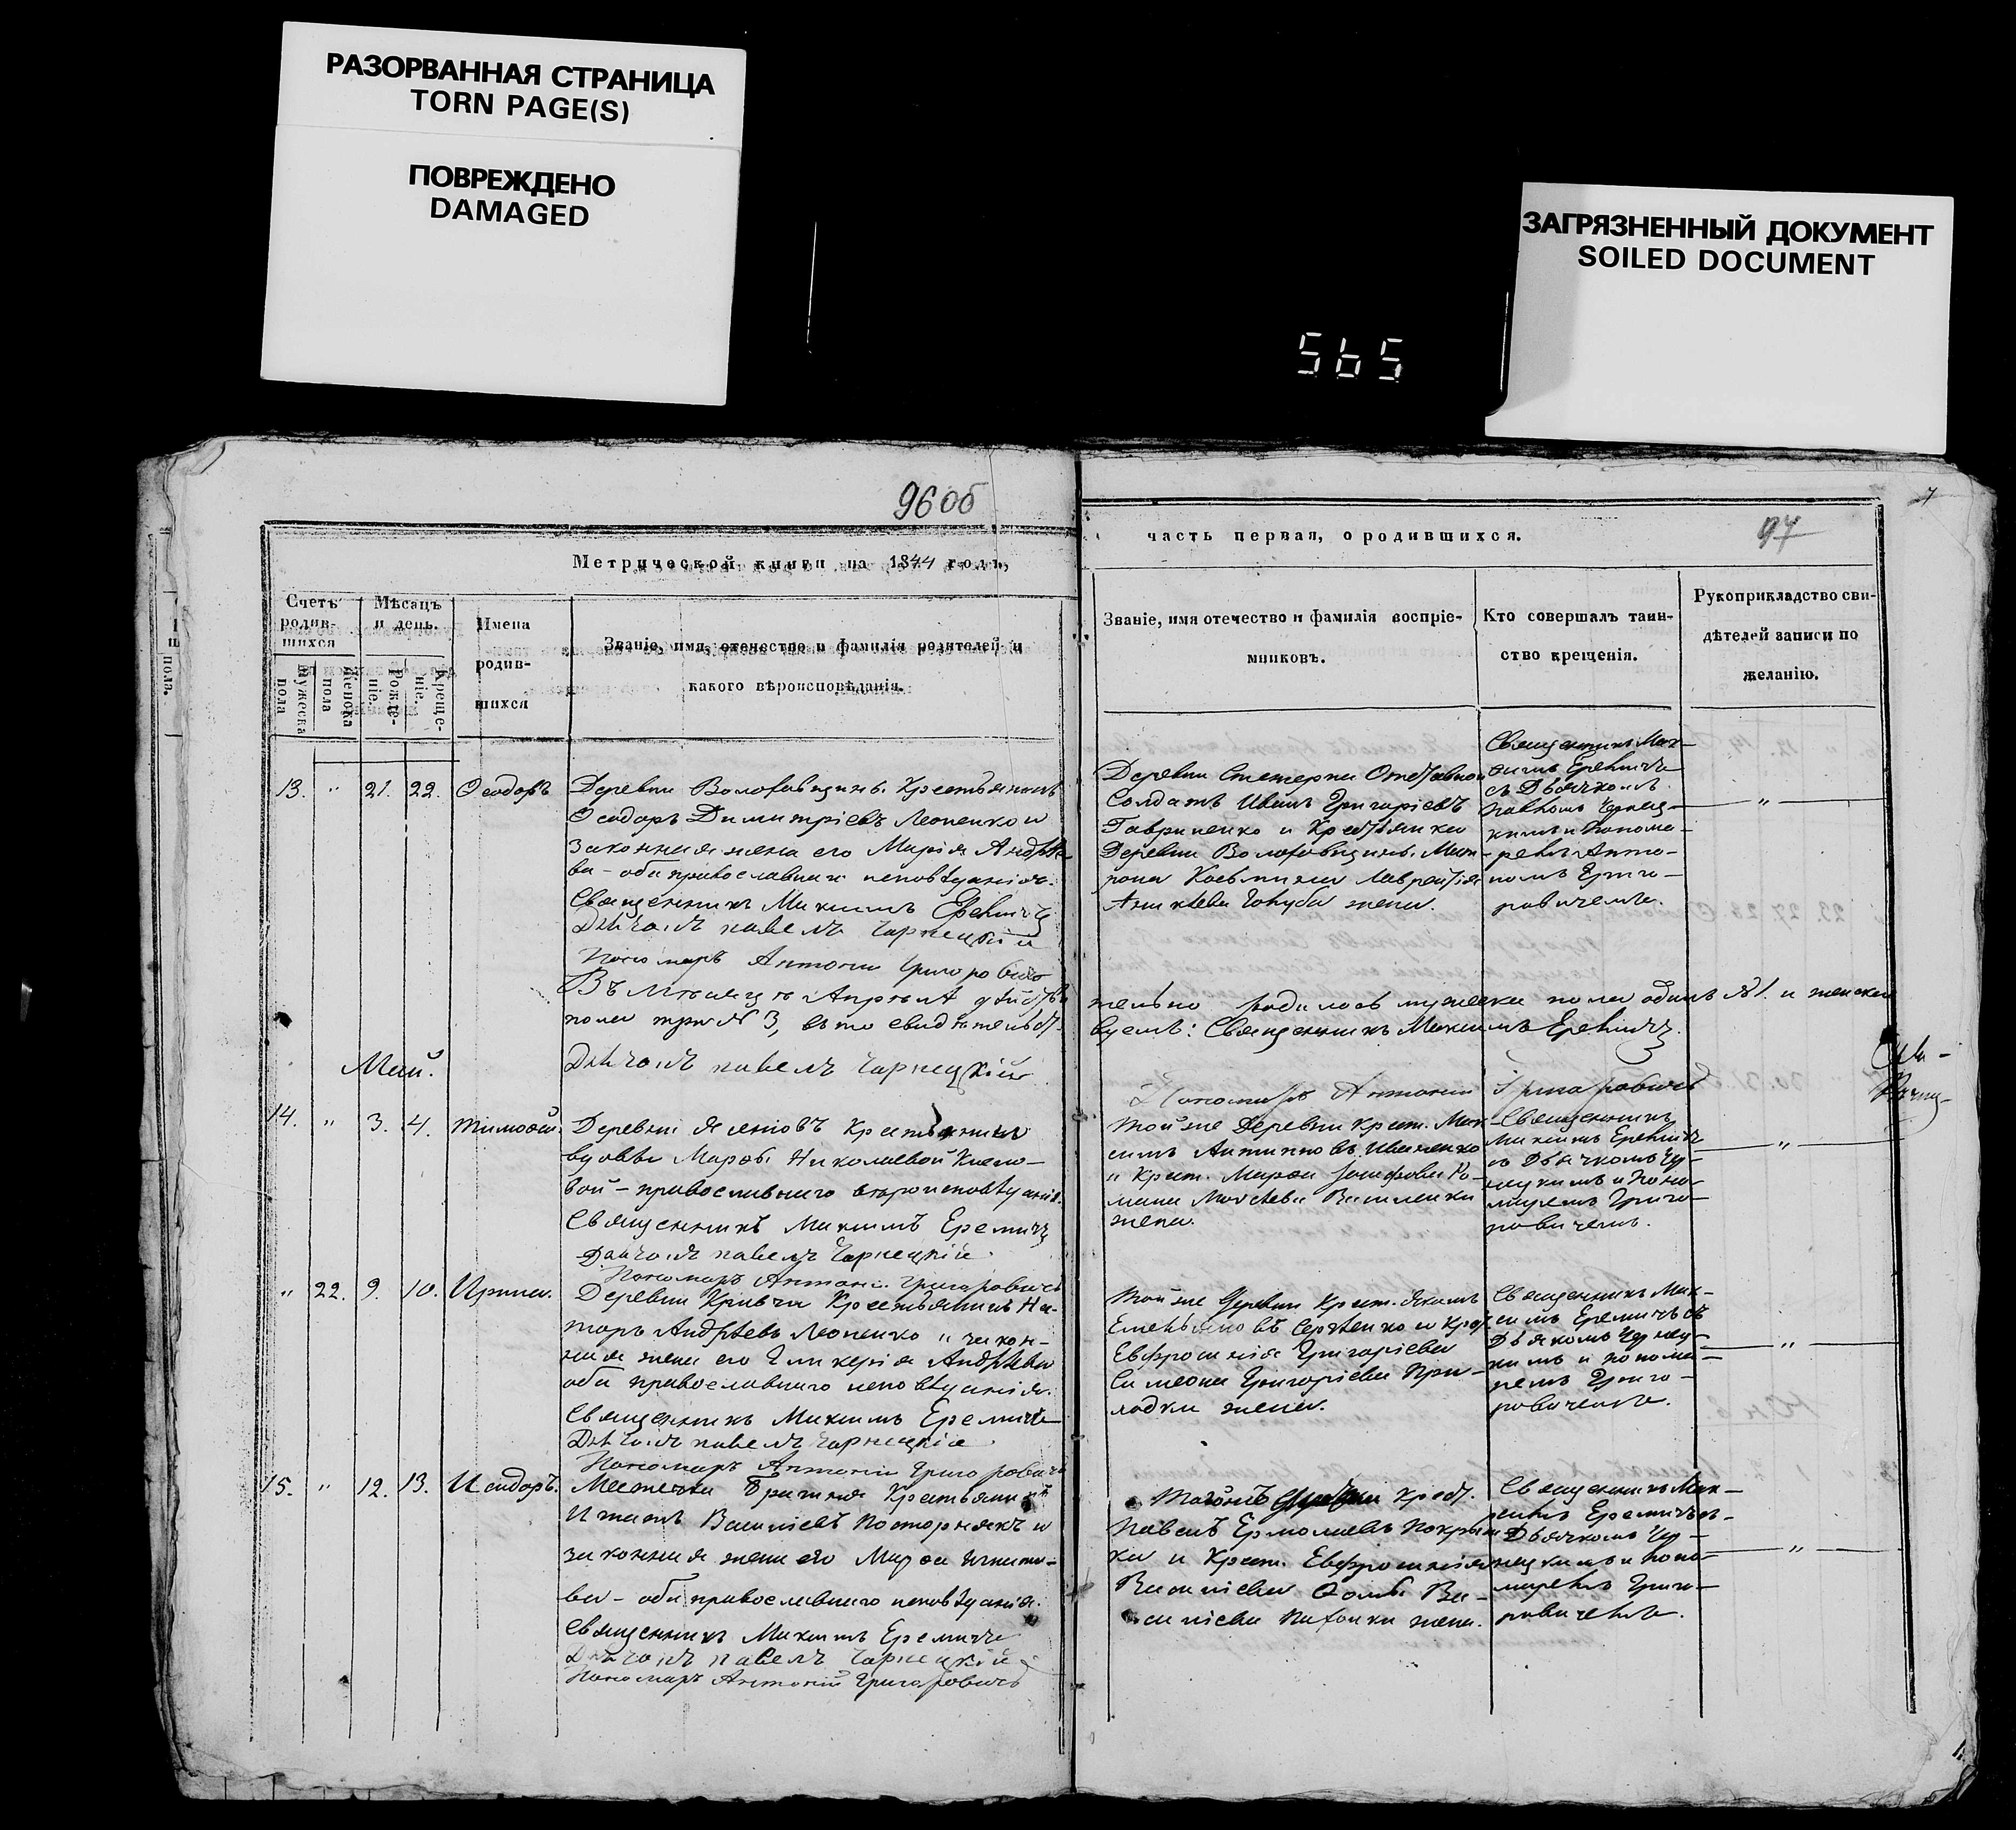 РАЗОРВАННАЯ СТРАНИЦА
TORN PAGE(S)
ПОВРЕЖДЕНО
DAMAGED
ЗАГРЯЗНЕННЫЙ ДОКУМЕНТ
SOILED DOCUMENT
565
96 об
97
Метрической книги на 1844 годъ,
часть первая, о родившихся.
Счетъ родив-шихся
Мужеска пола
Женска пола
Мѣсацъ и день.
Рожде-ніе.
Креще-ніе.
Имена
родив-
шихся
Званіе, имя, отечество и фамилія родителей и
какого вѣроисповѣданія.
Званіе, имя отечество и фамилія воспріе-
мниковъ.
Кто совершалъ таин-
ство крещенія.
Рукоприкладство сви-
дѣтелей записи по
желанію.
13. " 21. 22. Ѳеодоръ
Деревни Крестьянинъ
Ѳеодоръ Димитріевъ Леоненко и
законная жена его Марія Андрѣе-
ва - оба православнаго исповѣданія.
Священникъ Максимъ Еремичъ
Дьячокъ Павелъ Чарнецкій
Пономаръ Антоній Григоровичъ
Деревни Отставной
Солдатъ Иванъ Григоріевъ
Гавриленко и Крестьянка
Деревни
жена.
Священникъ Мак-
симъ Еремичъ
съ Дьячкомъ
Павломъ Чернец-
кимъ и Понома-
ремъ Анто-
ніемъ Григо-
ровичемъ.
"
Въ Мѣсяцѣ Апрѣлѣ дѣйстви
тельно родилось мужеска пола одинъ №1. и женска
пола три № 3, въ томъ свидѣтельст-
вуемъ: Священникъ Максимъ Еремичъ.
Дьячокъ Павелъ Чарнецкій
Пономаръ Антоній Григоровичъ
Май.
14. " 3. 4. Тимоѳей.
Деревни Ясеновъ Крестьянки
вдовы Марѳы Николаевой
вой - православнаго вѣроисповѣданія.
Священникъ Максимъ Еремичъ
Дьячокъ Павелъ Чарнецкій
Пономаръ Антоній Григоровичъ
Той же Деревни Крест. Мак-
симъ Антиповъ Иваненко
и Крест. Марѳа Іосифова Ро-
мана Василенки
жена.
Священникъ
Максимъ Еремичъ
съ Дьячкомъ Чер-
нецкимъ и Поно-
маремъ Григо-
ровичемъ.
"
" 22. 9. 10. Ирина.
Деревни Кривчи Крестьянинъ Не-
торъ Андрѣевъ Леоненко и закон-
ная жена его Гликерія Андрѣева
оба православнаго исповѣданія.
Священникъ Максимъ Еремичъ
Дьячокъ Павелъ Чарнецкій
Пономаръ Антоній Григоровичъ
Той же Деревни Крест. Якимъ
Сергѣенко и Крес.
Евфросинія Григоріева
Симеона Григоріева При-
ходки жена.
Священникъ Мак-
симъ Еремичъ съ
Дьячкомъ Чернец-
кимъ и Понома-
ремъ Григо-
ровичемъ.
"
15. " 12. 13. Исидоръ.
Местечка Брагиня Крестьянинъ
Игнатъ Василіевъ и
законная жена его Марѳа Игнатіе-
ва - оба православнаго исповѣданія.
Священникъ Максимъ Еремичъ
Дьячокъ Павелъ Чарнецкій
Пономаръ Антоній Григоровичъ
Крест.
Павелъ Ермолаевъ
ка и Крест. Евфросинія
Василіева Ѳомы Ва-
силіева жена.
Священникъ Мак-
симъ Еремичъ съ
Дьячкомъ Чер-
нецкимъ и Поно-
маремъ Григо-
ровичемъ.
"